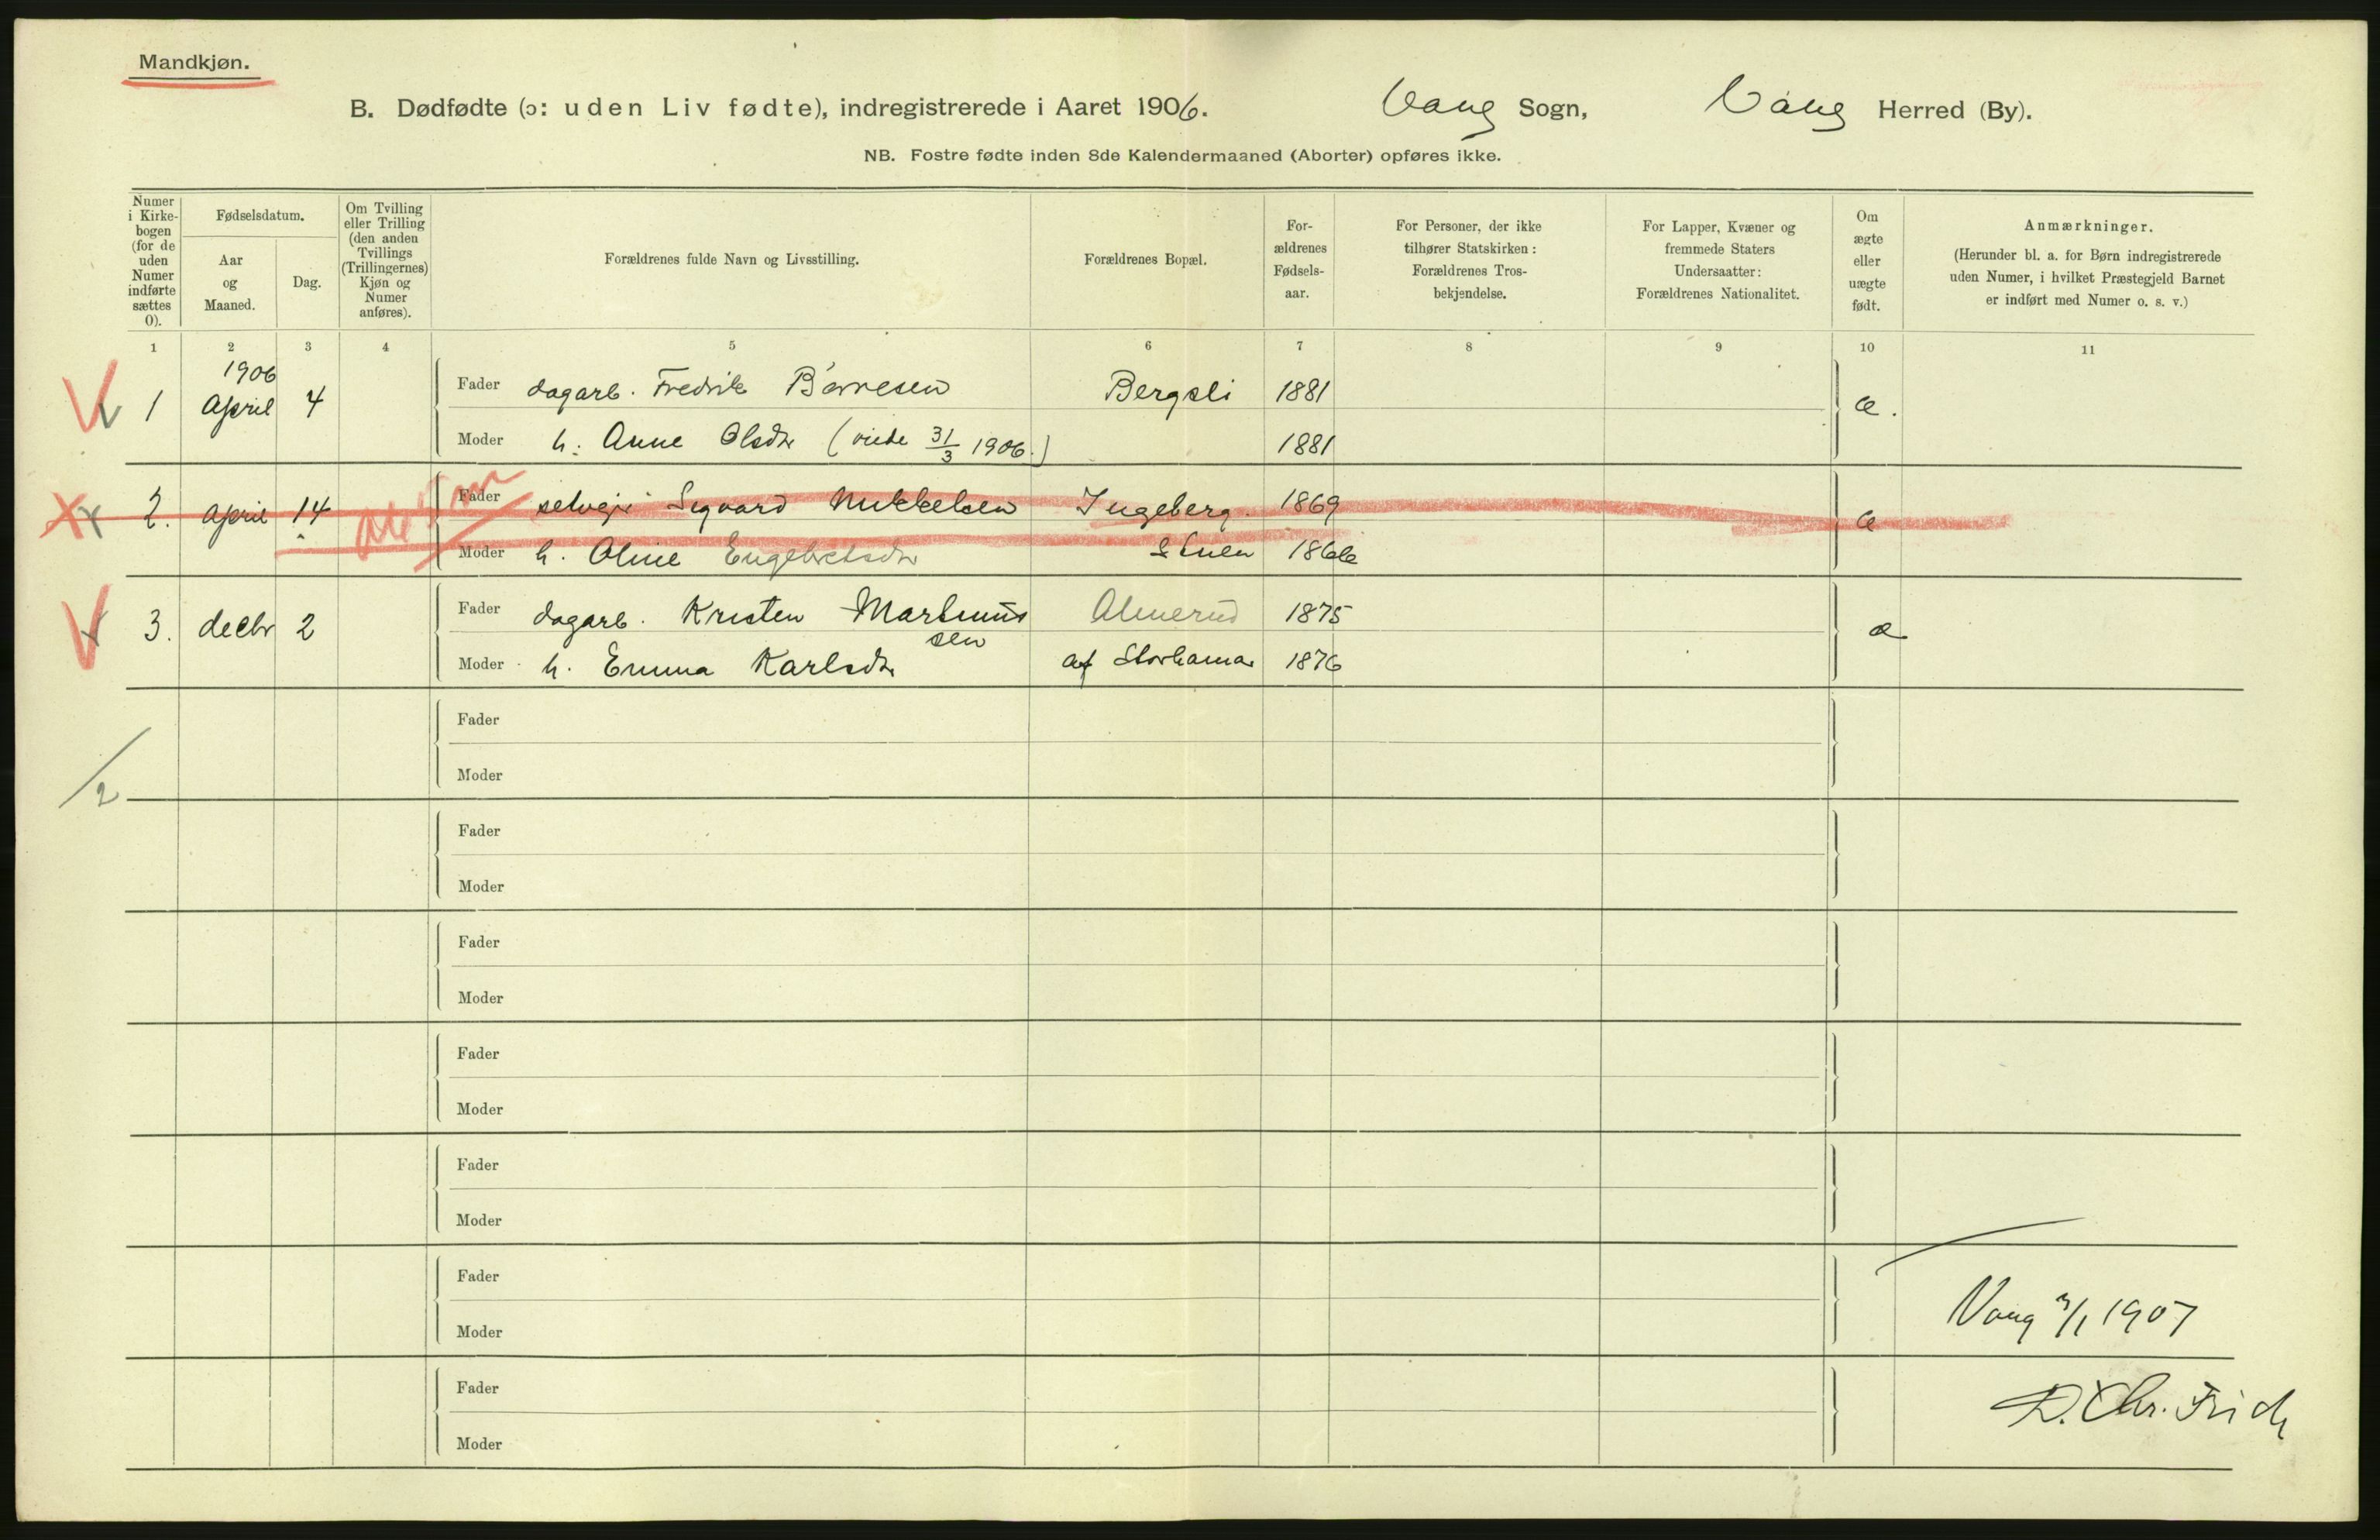 Mandkjøn.
B. Dødfødte (ɔ: uden Liv fødte), indregistrerede i Aaret 1906. Vang Sogn, Vang Herred (By).
NB. Fostre fødte inden 8de Kalendermaaned (Aborter) opføres ikke.
Numer i Kirkebogen (for de uden Numer indførte sættes 0).
Fødselsdatum.
Aar og Maaned.
Dag.
Om Tvilling eller Trilling (den anden Tvillings (Trillingernes) Kjøn og Numer anføres).
Forældrenes fulde Navn og Livsstilling.
Forældrenes Bopæl.
Forældrenes Fødselsaar.
For Personer, der ikke tilhører Statskirken: Forældrenes Trosbekjendelse.
For Lapper, Kvæner og fremmede Staters Undersaatter: Forældrenes Nationalitet.
Om ægte eller uægte født.
Anmærkninger.
(Herunder bl. a. for Børn indregistrerede uden Numer, i hvilket Præstegjeld Barnet er indført med Numer o. s. v.)
1 2 3 4 5 6 7 8 9 10 11
1906
1 April 4 Fader dagarb. Fredrik Børresen Bergsli 1881 æ.
Moder h. Anne Olsdtr (viede 31/3 1906.) 1881
2. April 14 Fader selvejer Sigvard Mikkelsen Ingeberg 1869 æ
Moder h. Oline Engebretsdtr 1866
3. decbr 2 Fader dagarb. Kristen Martinussen Almerud 1875 æ
Moder h. Emma Karlsdtr af Storhamar 1876
Fader
Moder
2
Fader
Moder
Fader
Moder
Fader
Moder
Fader
Moder
Fader
Moder
Vang 3/1 1907
Fader
D. Chr. Frich
Moder